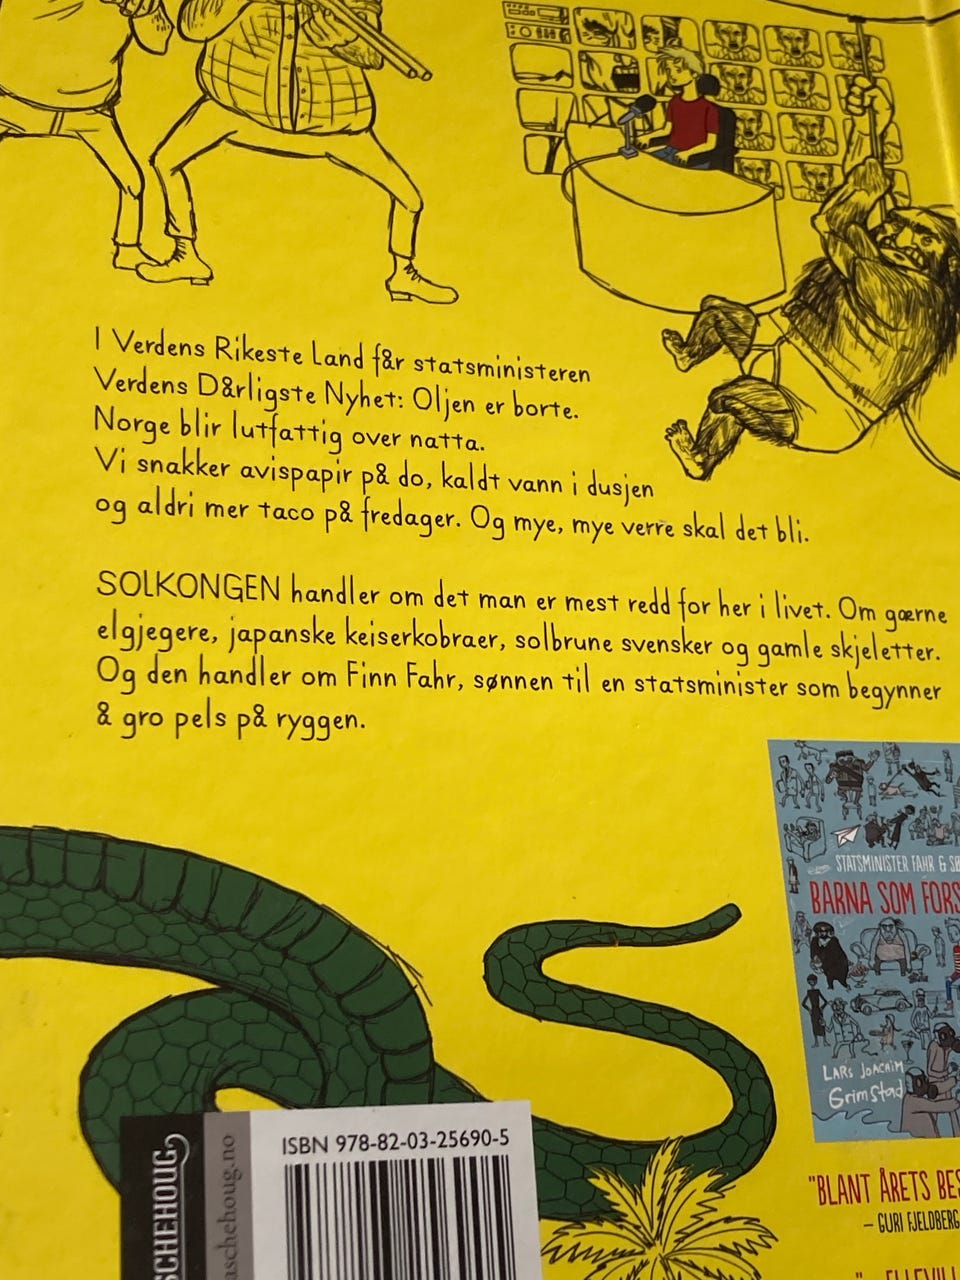 I Verdens Rikeste Land får statsministeren
Verdens Dårligste Nyhet: Oljen er borte.
Norge blir lutfattig over natta.
Vi snakker avispapir på do, kaldt vann i dusjen
og aldri mer taco på fredager. Og mye, mye verre skal det bli.
SOLKONGEN handler om det man er mest redd for her i livet. Om gærne
elgjegere, japanske keiserkobraer, solbrune svensker og gamle skjeletter.
Og den handler om Finn Fahr, sønnen til en statsminister som begynner
å gro pels på ryggen.
STATSMINISTER FAHR & SØ
BARNA SOM FORS
LARS JOACHIM
Grimstad
SCHEHOUG
aschehoug.no
ISBN 978-82-03-25690-5
"BLANT ÅRETS BES
– GURI FJELDBERG